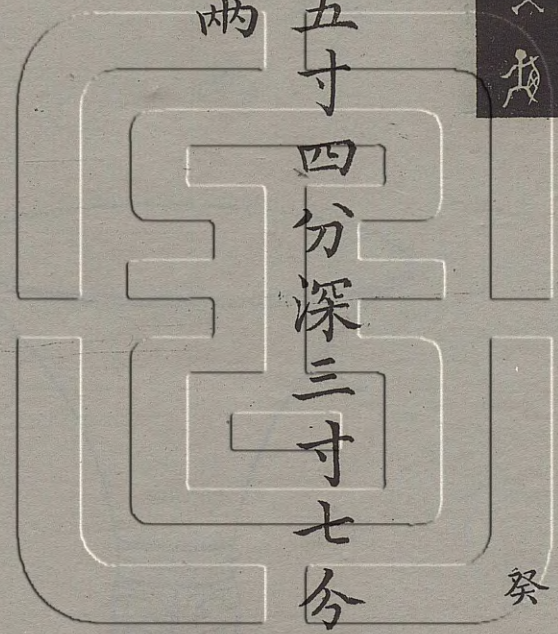 癸
五寸四分深三寸七分
兩